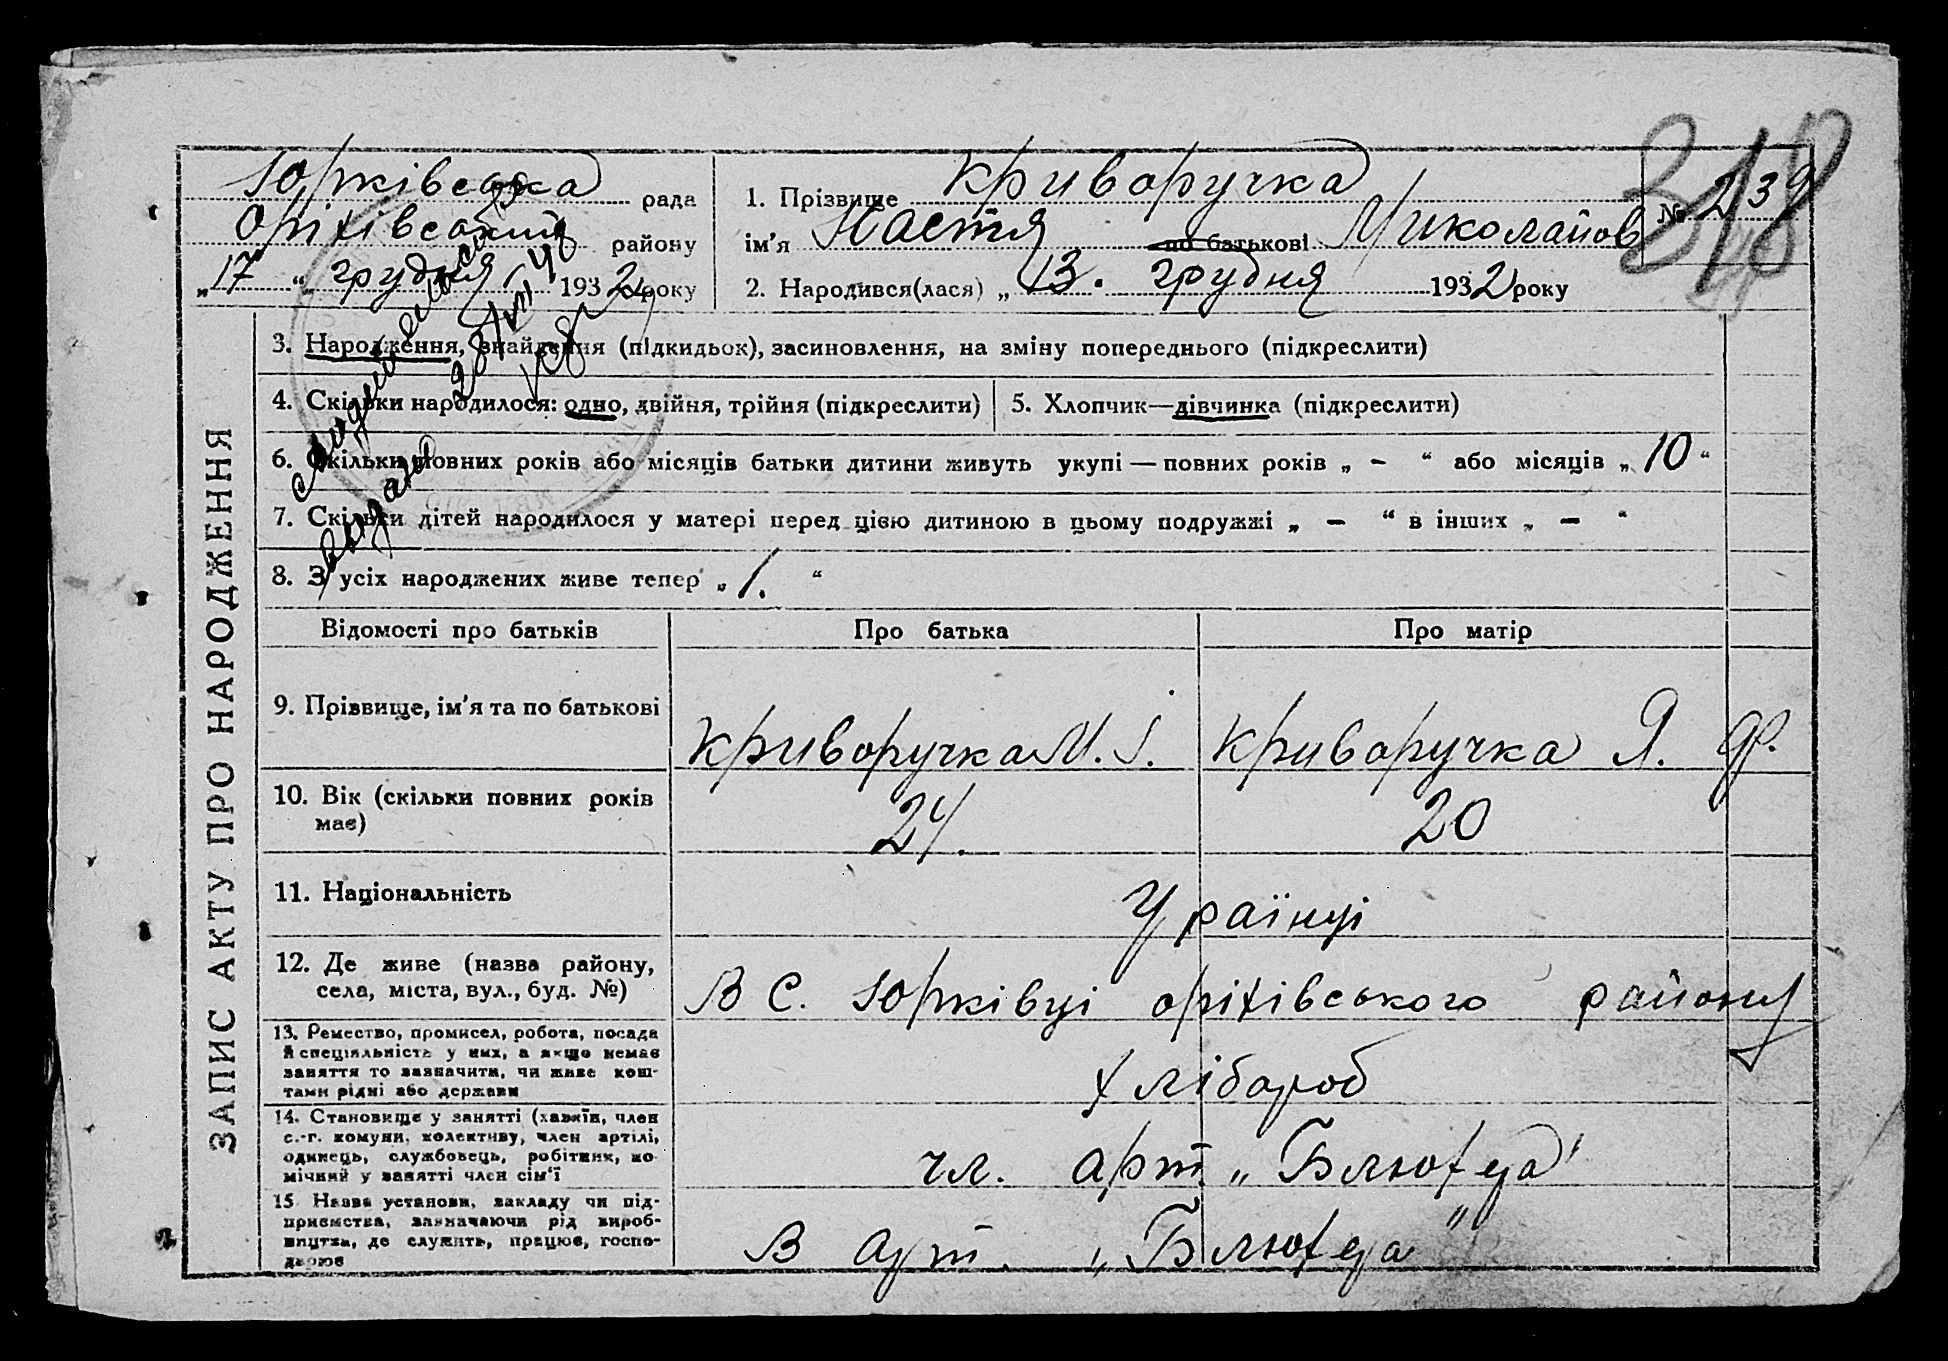 Юрківська рада
Оріхівський району
„17“ грудня 1932 року
1. Прізвище Криворучка
ім'я Настя по батькові Миколайов
№ 239
318
2. Народився(лася) „13. грудня 1932 року
свидетельство
выдано 28/VIII 48
ЗАПИС АКТУ ПРО НАРОДЖЕННЯ
3. Народження, знайдення (підкидьок), засиновлення, на зміну попереднього (підкреслити)
4. Скільки народилося: одно, двійня, трійня (підкреслити)
5. Хлопчик—дівчинка (підкреслити)
6. Скільки повних років або місяців батьки дитини живуть укупі — повних років „ – “ або місяців „ 10 “
7. Скільки дітей народилося у матері перед цією дитиною в цьому подружжі „ – “ в інших „ – “
8. З усіх народжених живе тепер „ 1. “
Відомості про батьків Про батька Про матір
9. Прізвище, ім'я та по батькові
Криворучка М. І. Криворучка Я. Ф.
10. Вік (скільки повних років
має)
24. 20
11. Національність
Ураїнці
12. Де живе (назва району,
села, міста, вул., буд. №)
В С. Юрківці оріхівського району
13. Ремество, промисел, робота, посада
й спеціяльність у них, а якщо немає
заняття то зазначити, чи живе кош-
тами рідні або держави
Хлібороб
14. Становище у занятті (хазяїн, член
с.-г. комуни, колективу, член артілі,
одинець, службовець, робітник, по-
мічний у занятті член сім'ї
чл. арт. „Блюхера"
15 Назва установи, закладу чи під-
приємства, зазначаючи рід вироб-
ництва, де служить, працює, госпо-
дарює
В арт. „Блюхера"